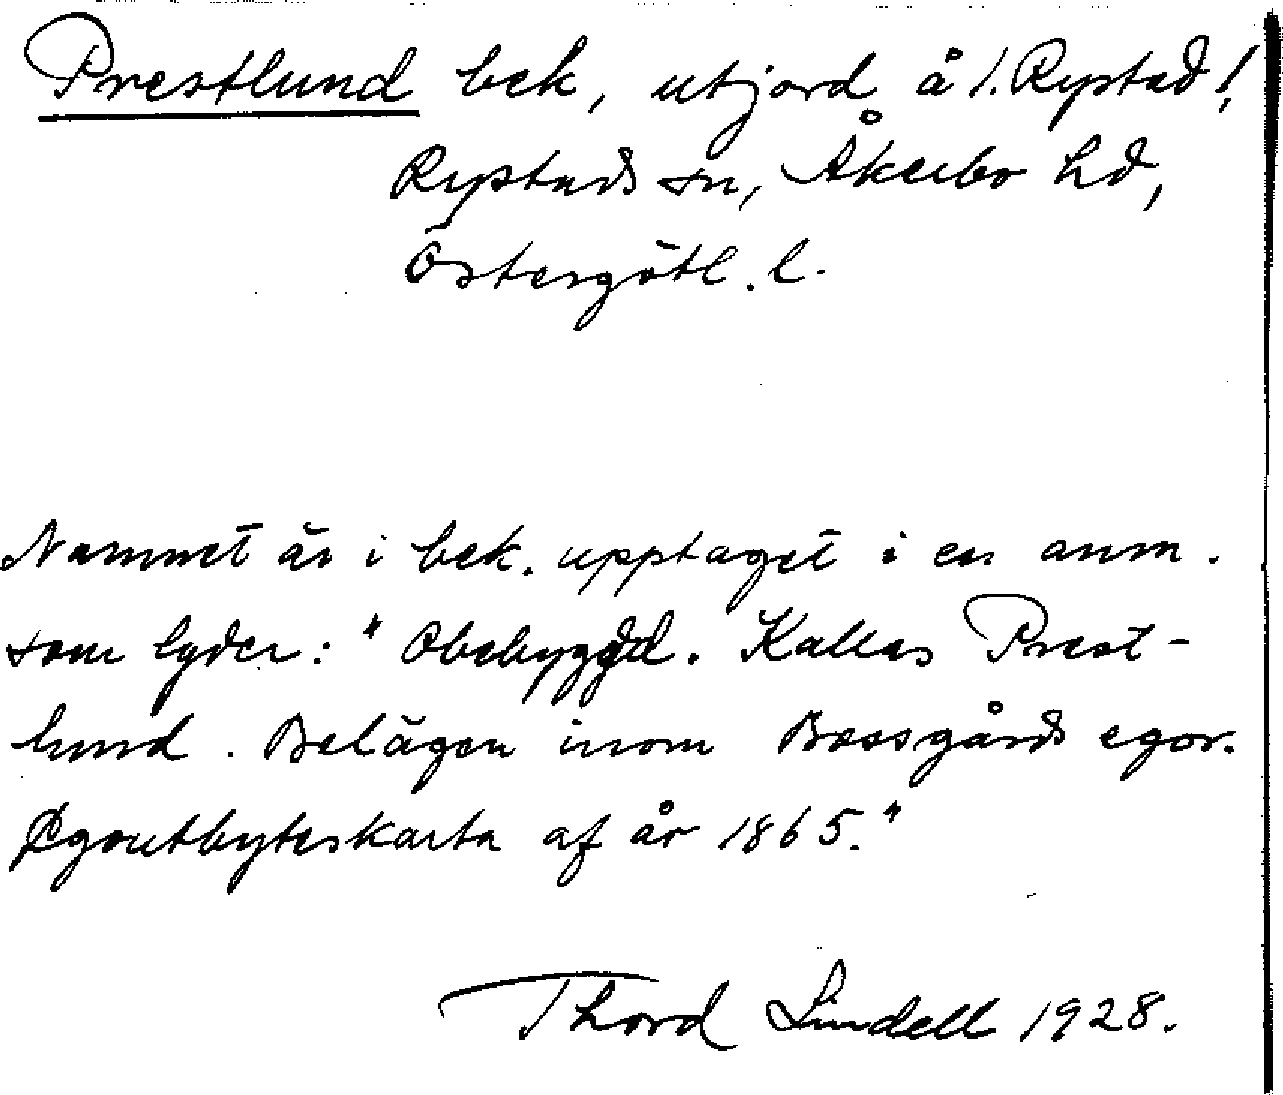 Prestlund bek, utjord å 1. Rystad!
Rystads sn, Åkerbo hd,
Östergötl. l.
Nammet är i bek. upptaget i en anm.
som lyder: "Obebyggd. Kallas Prest-
lund. Belägen inom Bossgårds egor.
Egoutbyteskarta af år 1865."
Thord Lindell 1928.